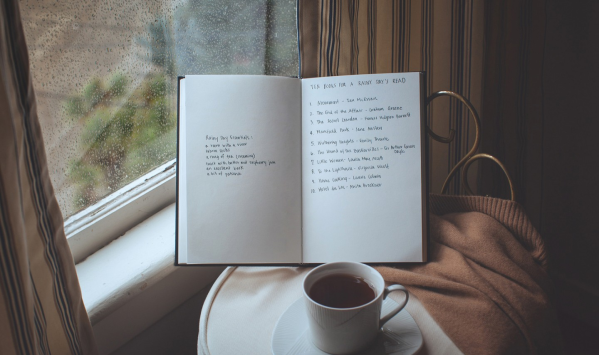 Rainy Day Essentials:
a room with a view
warm socks
a mug of tea (steaming)
toast with butter and raspberry jam
an excellent book
a bit of patience
TEN BOOKS FOR A RAINY DAY'S READ
1. Atonement - Ian McEwan
2. The End of the Affair - Graham Greene
3. The Secret Garden - Frances Hodgson Burnett
4. Mansfield Park - Jane Austen
5. Wuthering Heights - Emily Bronte
6. The Hound of the Baskervilles - Sir Arthur Conan
Doyle
7. Little Women - Louisa May Alcott
8. To the Lighthouse - Virginia Woolf
9. Home Cooking - Laurie Colwin
10.